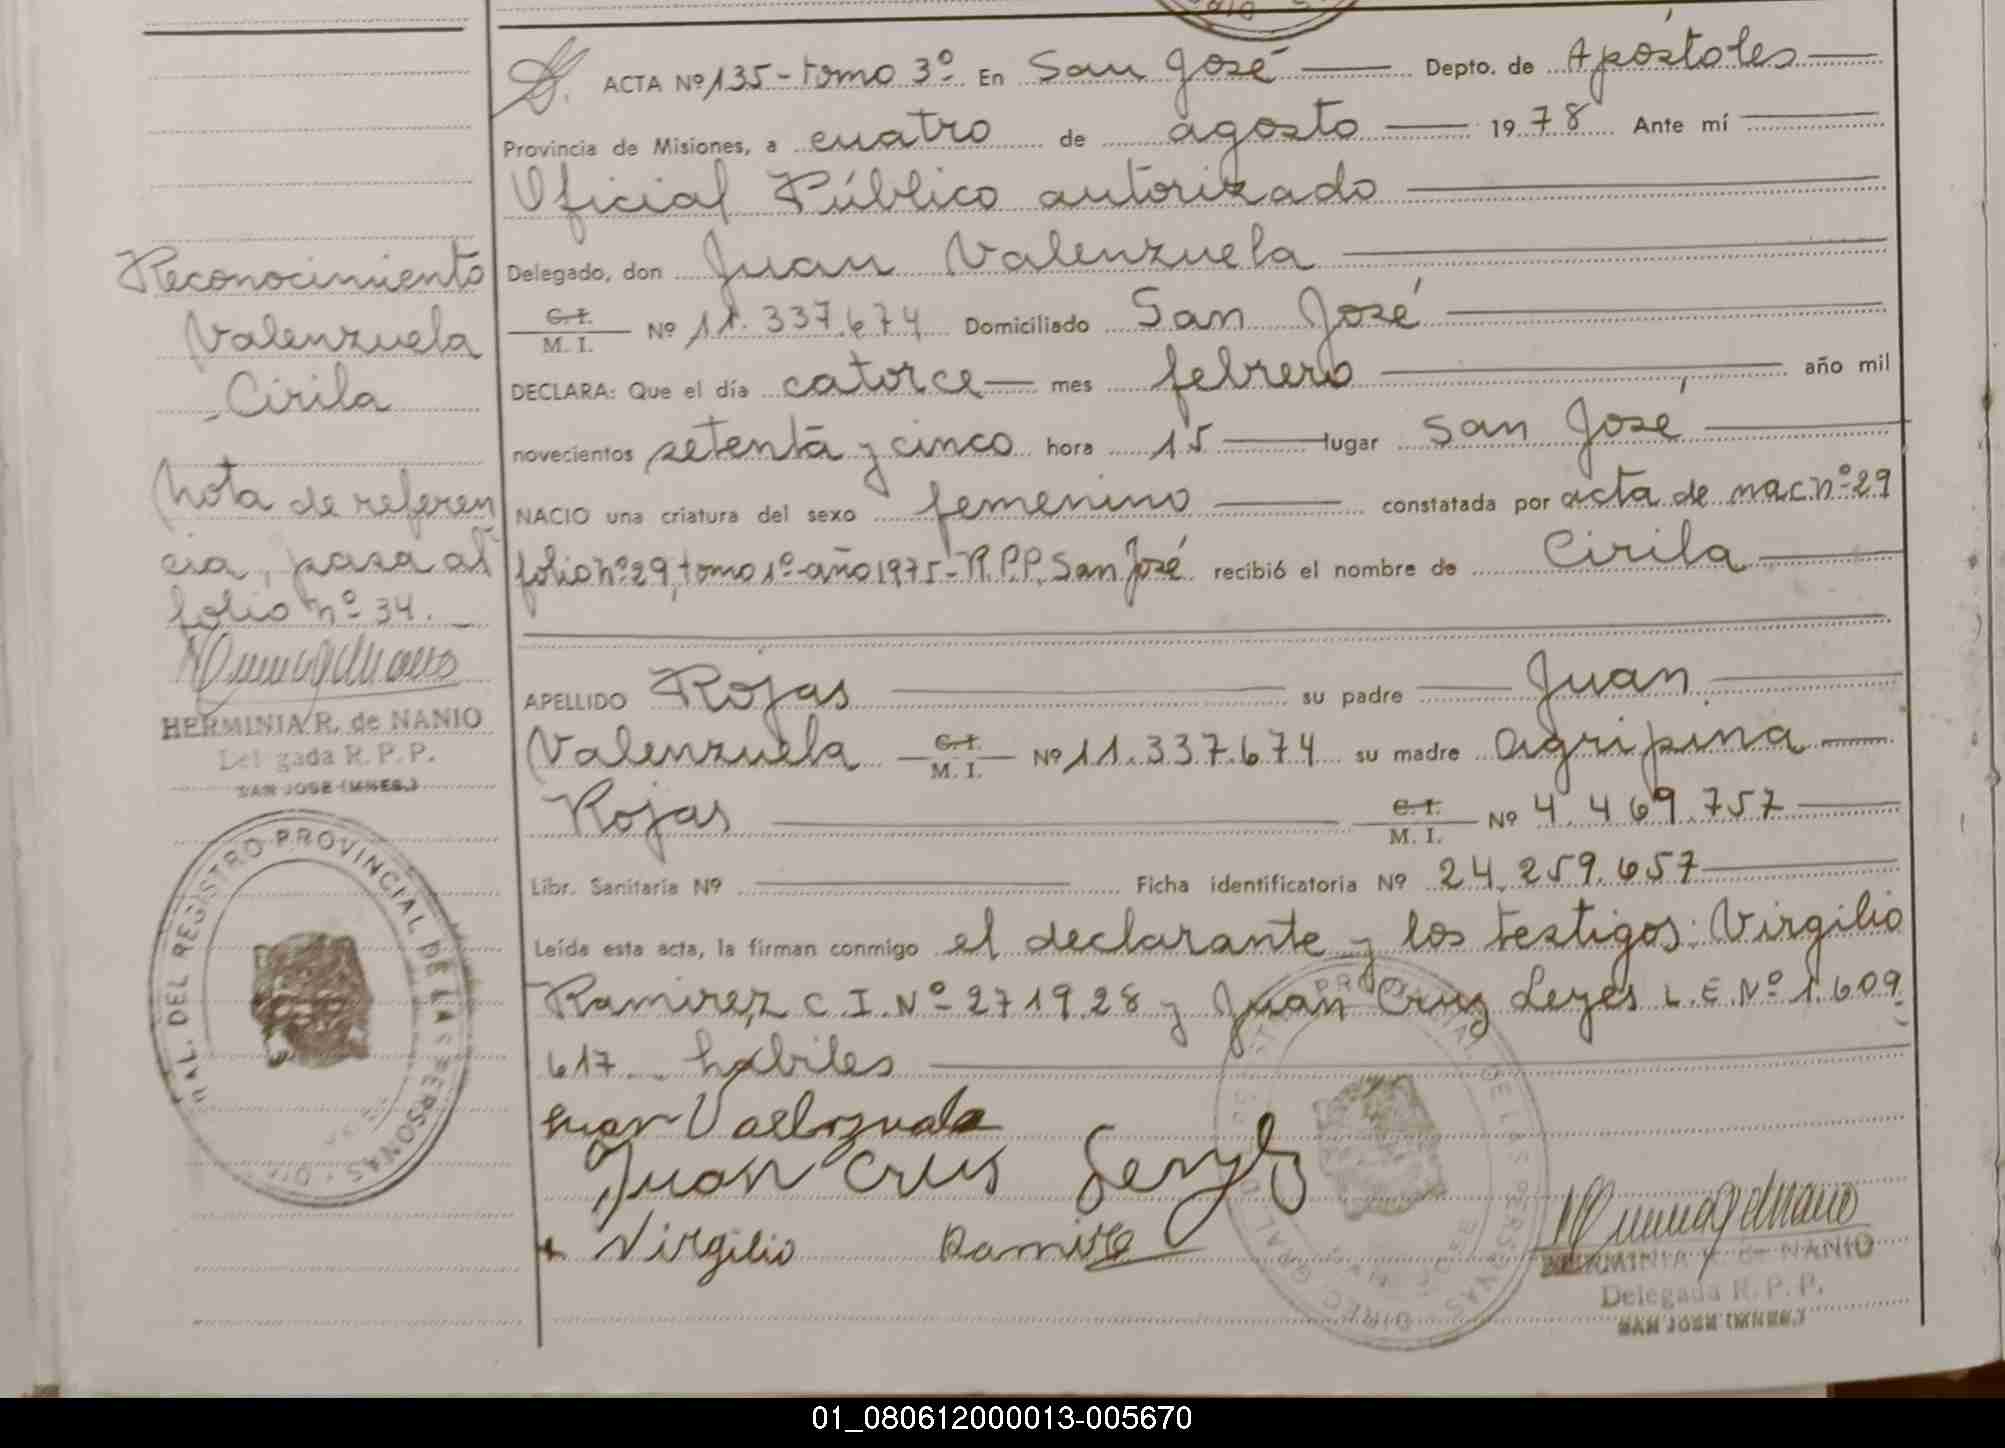 ACTA Nº 135 - tomo 3º En San José Depto. de Apóstoles
Provincia de Misiones, a cuatro de agosto 1978 Ante mí
Oficial Público autorizado
Delegado, don Juan Valenzuela
C. I. M. I. Nº 11.337.674 Domiciliado San José
DECLARA: Que el día catorce mes febrero año mil
novecientos setenta y cinco hora 15 lugar San José
NACIO una criatura del sexo femenino constatada por acta de nac nº 29
folio nº 29, tomo 1º - año 1975 - R.P.P. San José recibió el nombre de Cirila
APELLIDO Rojas su padre Juan
Valenzuela C. I. M. I. Nº 11.337.674 su madre Agripina
Rojas C. I. M. I. Nº 4.469.757
Libr. Sanitaria Nº Ficha identificatoria Nº 24.259.657
Leída esta acta, la firman conmigo el declarante y los testigos: Virgilio
Ramirez C.I. Nº 271928 y Juan Cruz Leyes L.E. Nº 1.609.
617 habiles
Juan
Juan Crus
Virgilio
Reconocimiento
Valenzuela
Cirila
Nota de referen
cia, pasa al
folio nº 34.
HERMINIA R. de NANIO
Delegada R. P. P.
SAN JOSE (MNES.)
REGISTRO PROVINCIAL DE LAS PERSONAS
HERMINIA R. de NANIO
Delegada R. P. P.
SAN JOSE (MNES.)
01_080612000013-005670